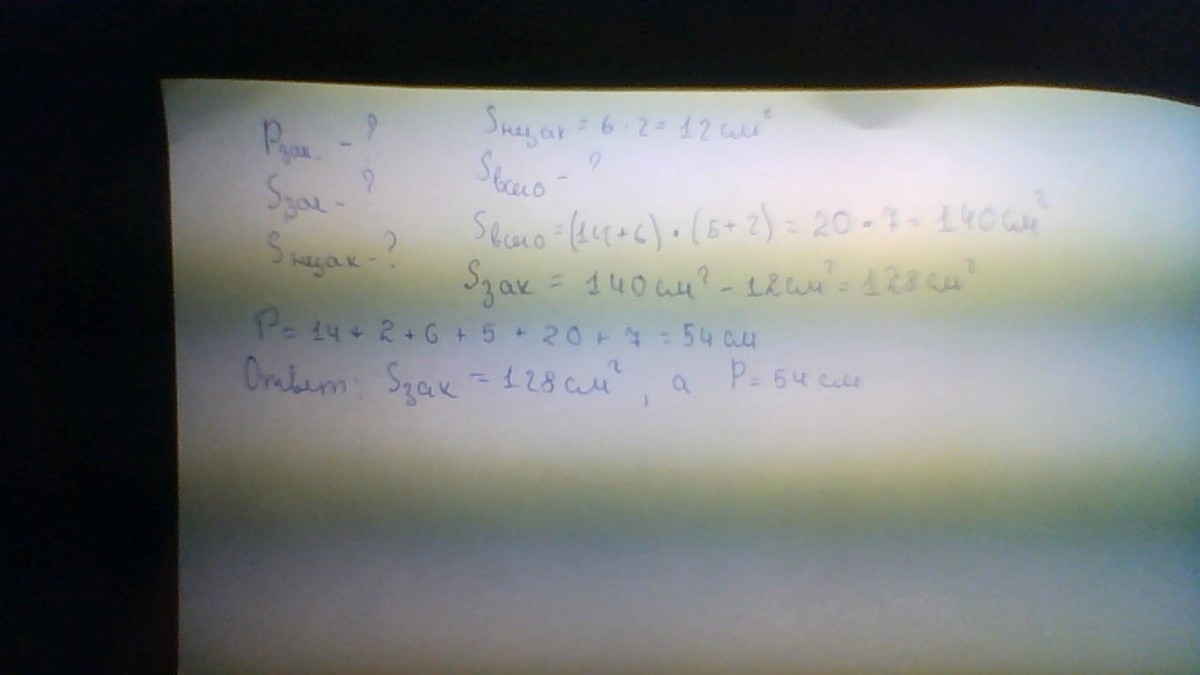 Pзак. - ? Sнезак = 6 · 2 = 12 см²
Sзак - ? Sвсего - ?
Sнезак - ? Sвсего = (14+6) · (5+2) = 20 · 7 = 140 см²
Sзак = 140 см² - 12 см² = 128 см²
P = 14 + 2 + 6 + 5 + 20 + 7 = 54 см
Ответ: Sзак = 128 см², а P = 54 см